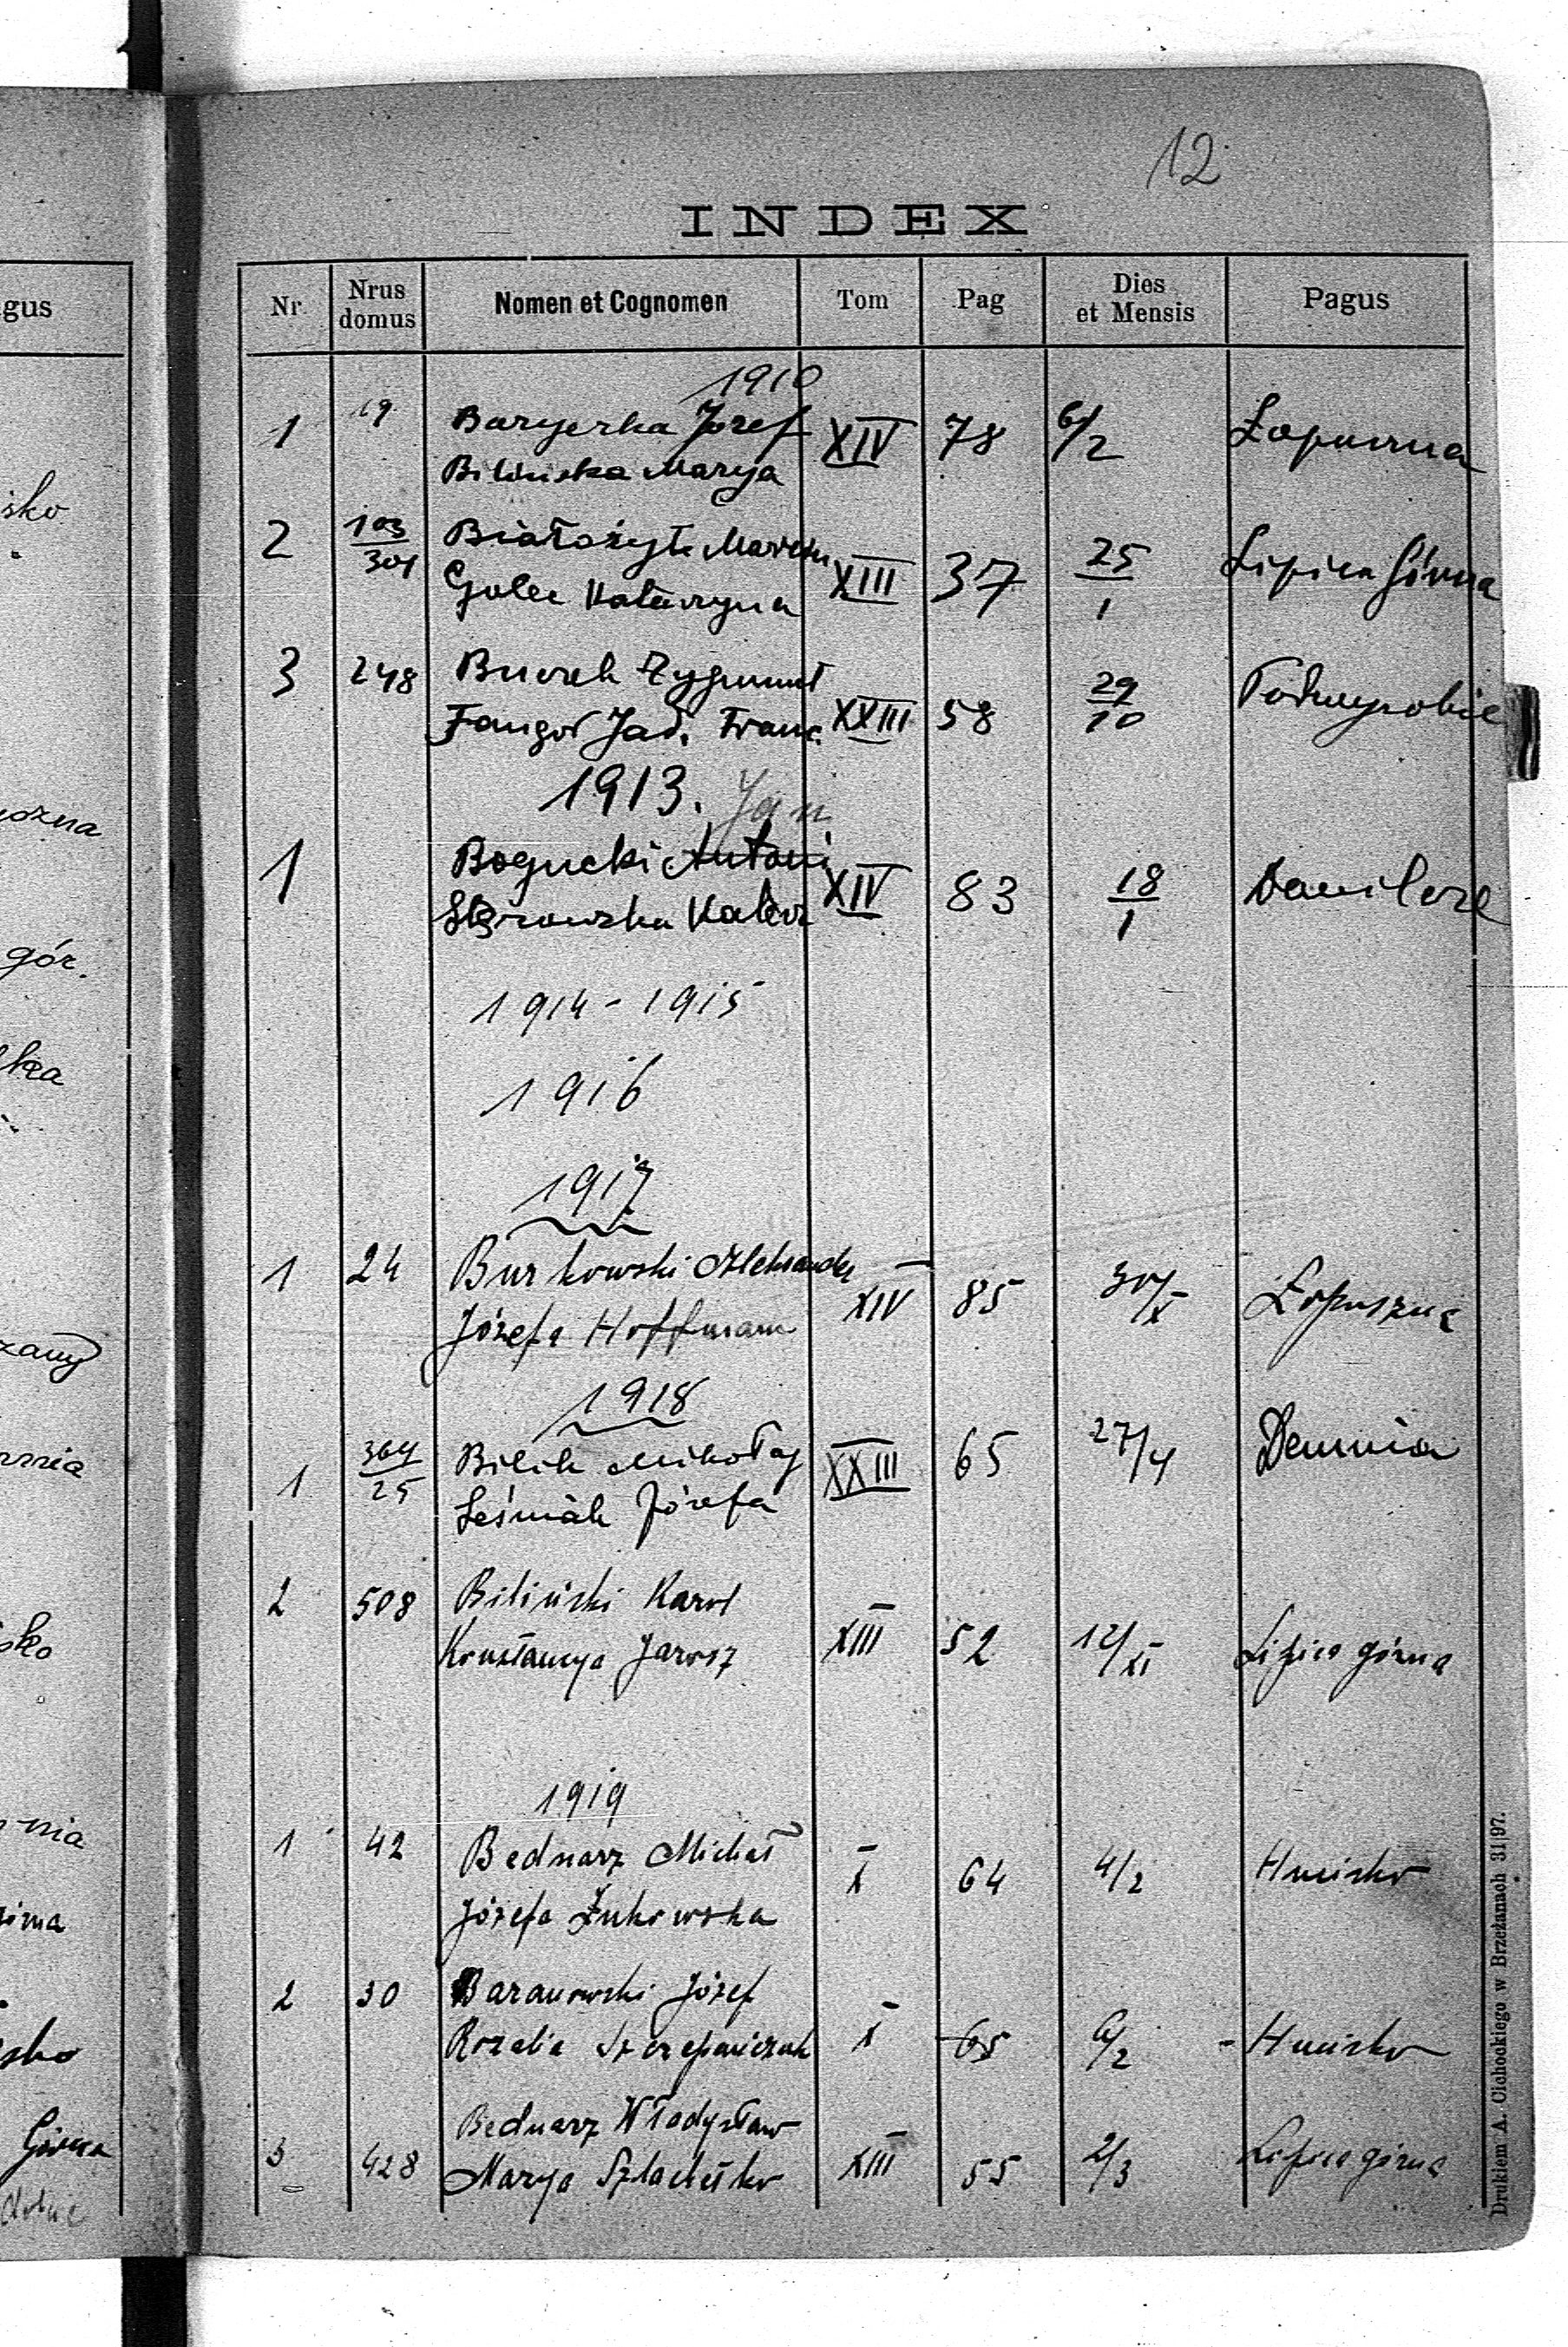 12
INDEX
Nr Nrus domus Nomen et Cognomen Tom Pag Dies et Mensis Pagus
1910
1 19 Baryerka Józef XIV 78 6/2 Łopuszna
Bilińska Marya
2 103/301 Białożyt Marcin XIII 37 25/1 Lipica Górna
Golec Katarzyna
3 248 Burek Zygmunt XXIII 58 29/10
Fangor Jad. Franc.
1913. Jan
1 Bogucki Antoni XIV 83 18/1 Danilcze
Katarz
1914-1915
1916
1917
1 24 Burkowski Aleksander XIV 85 30/X Łopuszna
Józefa Hoffmann
1918
1 364/25 Bilik Mikołaj XXIII 65 27/4 Demnia
Leśniak Józefa
2 508 Biliński Karol XIII 52 12/XI Lipica górna
Konstancya Jarosz
1919
1 42 Bednarz Michał X 64 4/2 Hucisko
Józefa Żukowska
2 30 Baranowski Józef X 65 6/2 - Hucisko
Rozalia Szczepańczuk
3 428 Bednarz Władysław XIII 55 2/3 Lipica górna
Marya Szlachetko
Drukiem A. Cichockiego w Brzeżanach 31|97.
gus
isko
ozna
gór.
lka
zany
mnia
sko
nia
sko
Górna